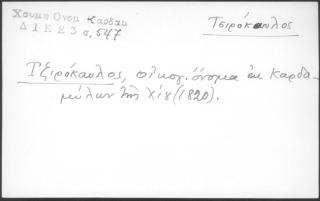 Χουμμ Ονομ Καρδαμ
Δ Ι Ε Ε 3 σ, 547
Τσιρόκαυλος
Τζιρόκαυλος, οἰκογ. ὄνομα ἐκ Καρδα-
μύλων τῆς Χίου (1820).